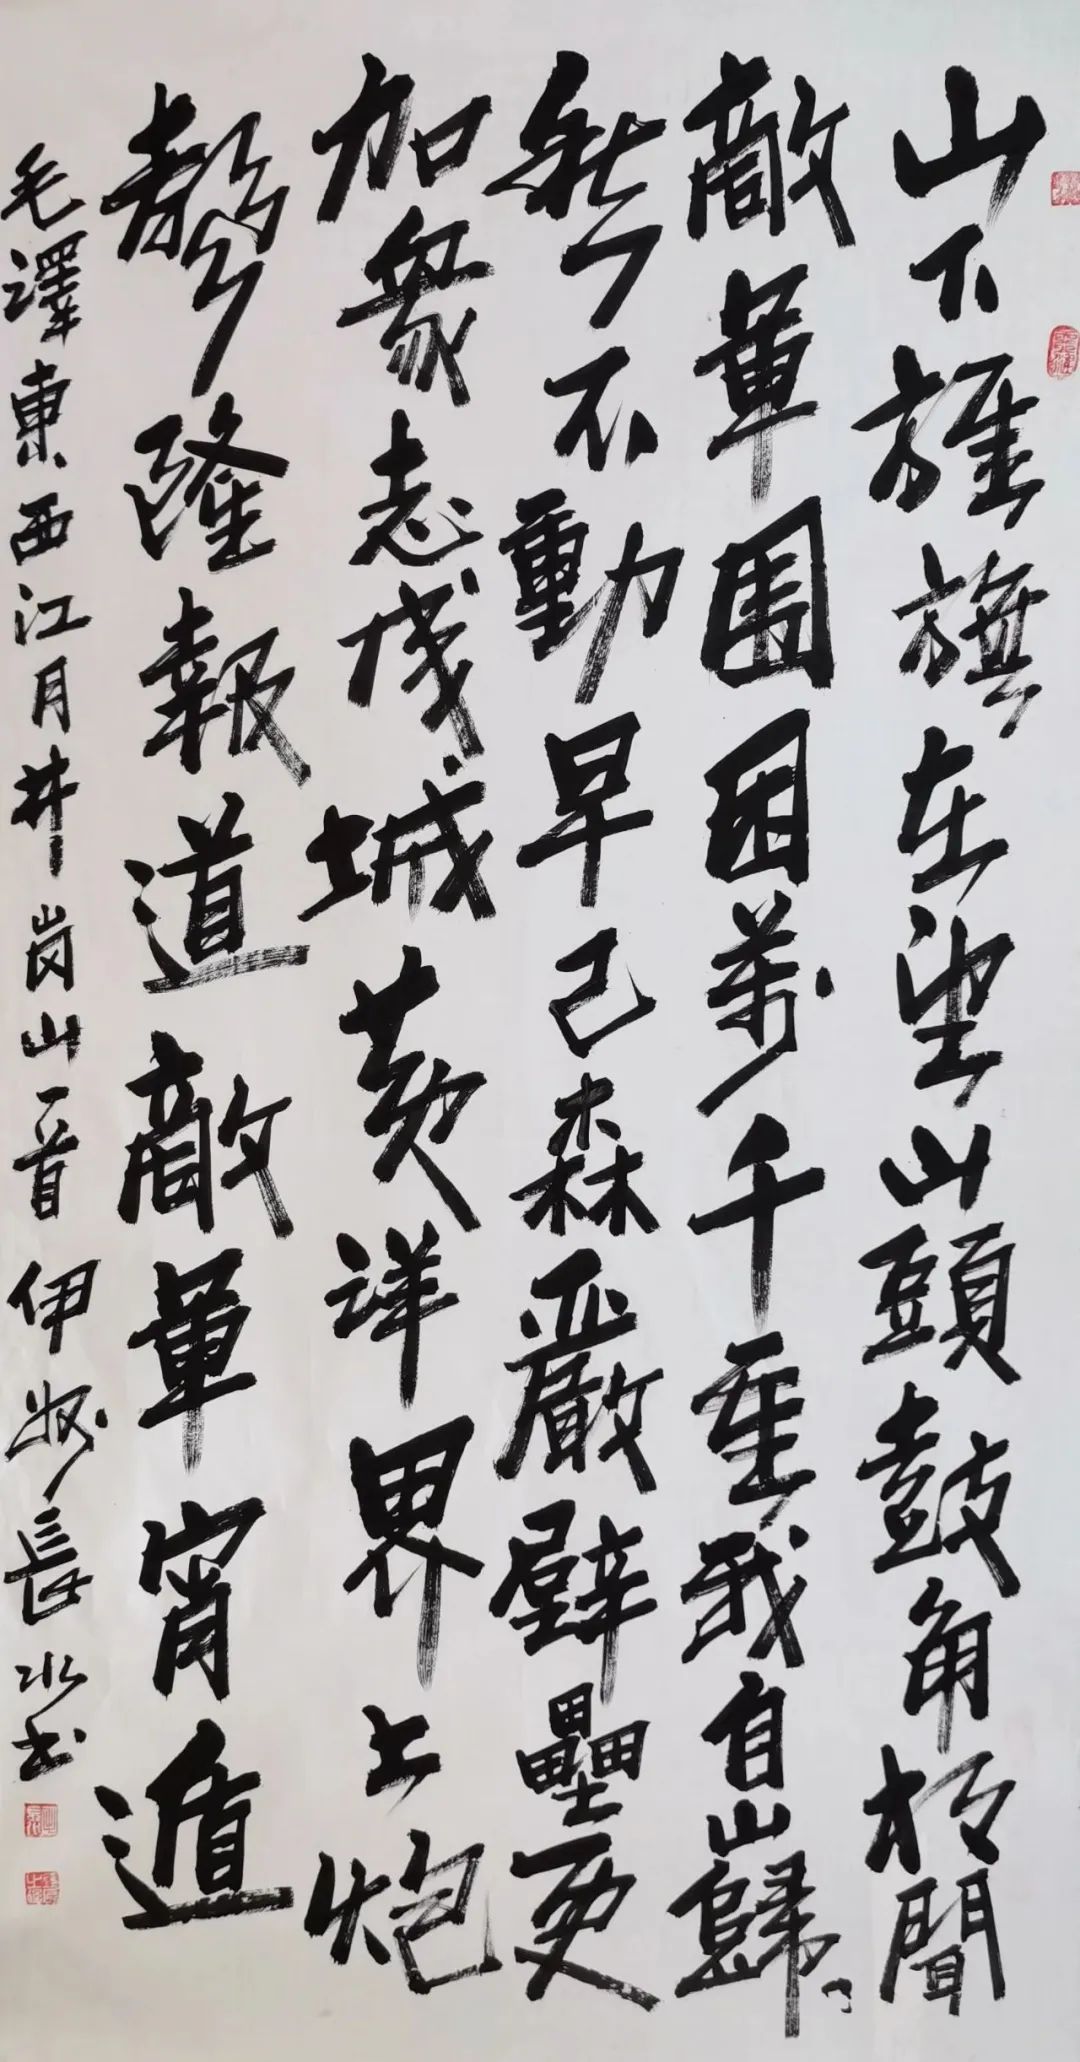 山下旌旗在望山頭鼓角相聞
敵軍圍困萬千重我自巋
然不動早已森嚴壁壘更
加衆志成城黄洋界上炮
聲隆報道敵軍宵遁
毛澤東西江月井岗山一首伊長水书